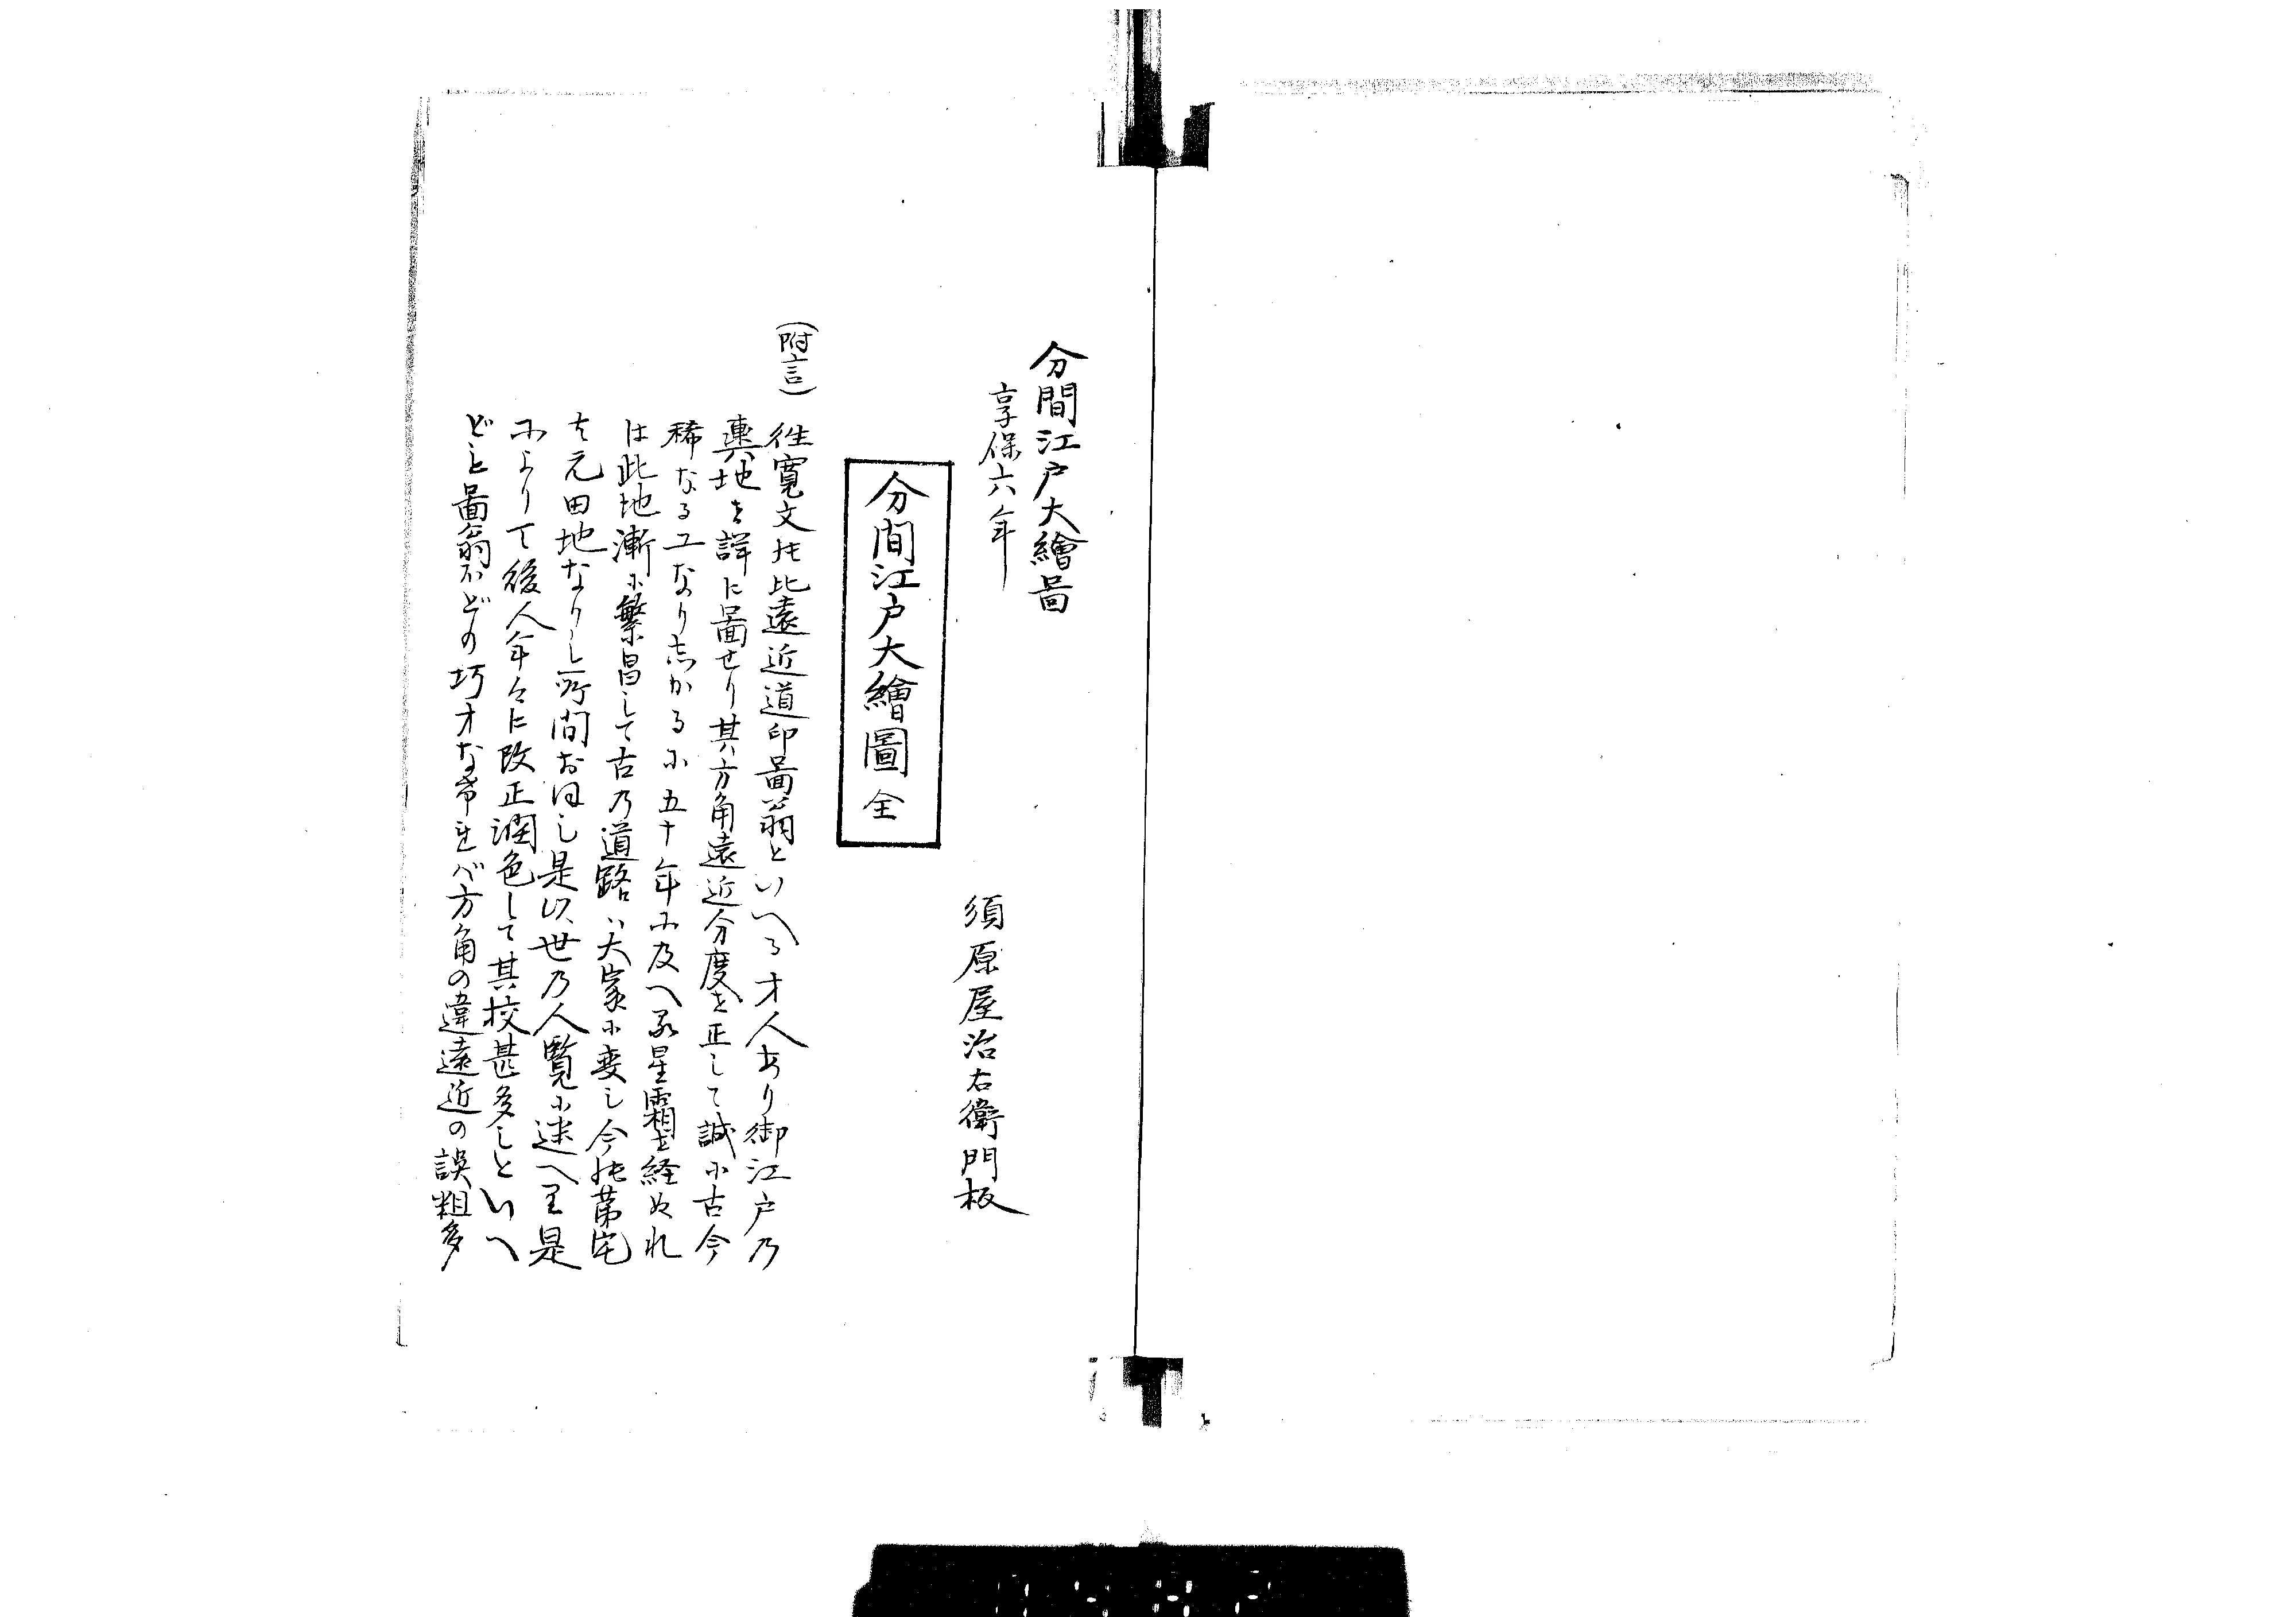 分間江戸大繪啚
享保六年
須原屋治右衛門板
分間江戸大繪圖 全
(附言)
往寛文比遠近道印啚翁といへる才人あり御江戸乃
輿地を詳に啚せり其方角遠近分度を正して誠尓古今
稀なるユなり志かる尓五十年尓及へる星霜を経ぬれ
は此地漸尓繁昌して古乃道路ハ大家尓変し今第宅
元田地なりし所間おほし是以世乃人覧尓迷へり是
尓よりて後人年々に改正潤色して其校甚多しといへ
ども啚翁がどの巧才な希れバ方角の違遠近の誤粗多